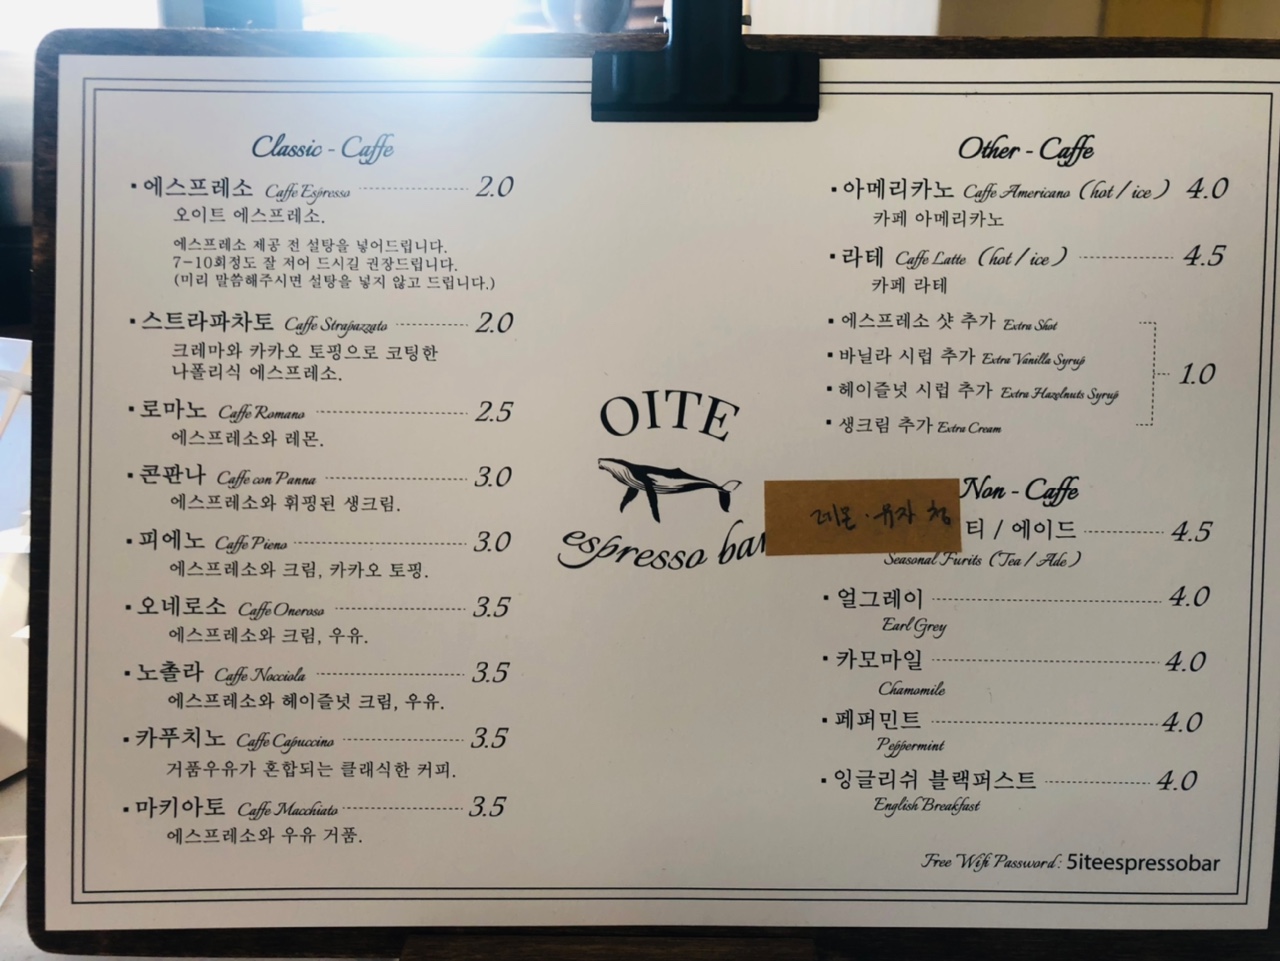 Classic - Caffe
▪ 에스프레소 Caffe Espresso 2.0
오이트 에스프레소.
에스프레소 제공 전 설탕을 넣어드립니다.
7-10회정도 잘 저어 드시길 권장드립니다.
(미리 말씀해주시면 설탕을 넣지 않고 드립니다.)
▪ 스트라파차토 Caffe Strapazzato 2.0
크레마와 카카오 토핑으로 코팅한
나폴리식 에스프레소.
▪ 로마노 Caffe Romano 2.5
에스프레소와 레몬.
▪ 콘판나 Caffe con Panna 3.0
에스프레소와 휘핑된 생크림.
▪ 피에노 Caffe Pieno 3.0
에스프레소와 크림, 카카오 토핑.
▪ 오네로소 Caffe Oneroso 3.5
에스프레소와 크림, 우유.
▪ 노촐라 Caffe Nocciola 3.5
에스프레소와 헤이즐넛 크림, 우유.
▪ 카푸치노 Caffe Capuccino 3.5
거품우유가 혼합되는 클래식한 커피.
▪ 마키아토 Caffe Macchiato 3.5
에스프레소와 우유 거품.
OITE
espresso bar
Other - Caffe
▪ 아메리카노 Caffe Americano (hot / ice) 4.0
카페 아메리카노
▪ 라테 Caffe Latte (hot / ice) 4.5
카페 라테
▪ 에스프레소 샷 추가 Extra Shot
▪ 바닐라 시럽 추가 Extra Vanilla Syrup
▪ 헤이즐넛 시럽 추가 Extra Hazelnuts Syrup
▪ 생크림 추가 Extra Cream
1.0
Non - Caffe
레몬 · 유자 청 티 / 에이드 4.5
Seasonal Furits (Tea / Ade)
▪ 얼그레이 4.0
Earl Grey
▪ 카모마일 4.0
Chamomile
▪ 페퍼민트 4.0
Peppermint
▪ 잉글리쉬 블랙퍼스트 4.0
English Breakfast
Free Wifi Password: 5iteespressobar